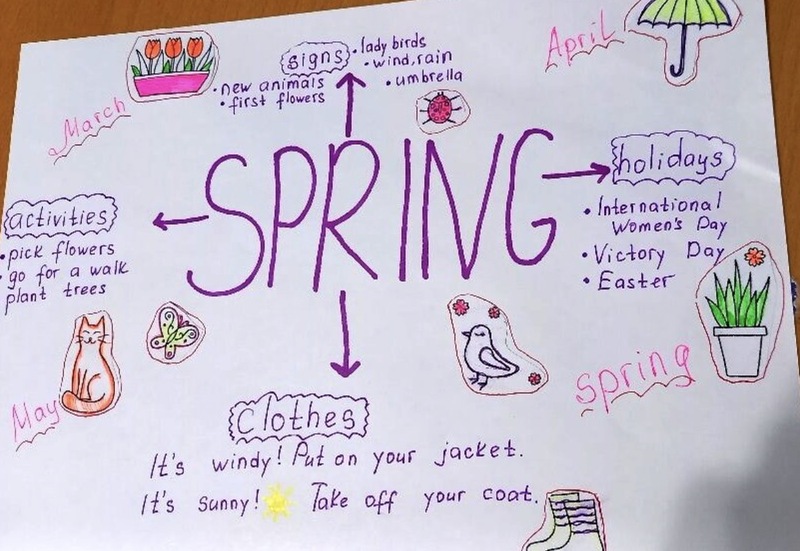 March
signs
• new animals
• first flowers
• lady birds
• wind, rain
• umbrella
April
SPRING
activities
• pick flowers
• go for a walk
plant trees
holidays
• International
Women's Day
• Victory Day
• Easter
May
spring
Clothes
It's windy! Put on your jacket.
It's sunny! Take off your coat.